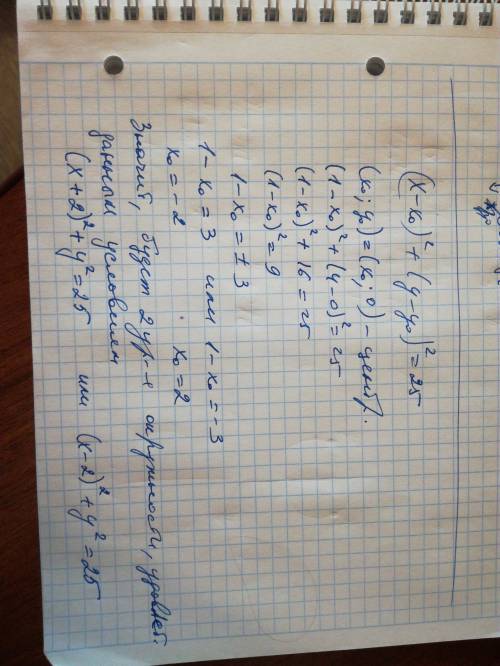 (x-x₀)²+(y-y₀)²=25
(x₀; y₀)=(x₀; 0) - центр.
(1-x₀)²+(4-0)²=25
(1-x₀)²+16=25
(1-x₀)²=9
1-x₀=±3
1-x₀=3 или 1-x₀=-3
x₀=-2 x₀=2
Значит, будет 2 ур-я окружности, удовлет.
данным условием
(x+2)²+y²=25 или (x-2)²+y²=25